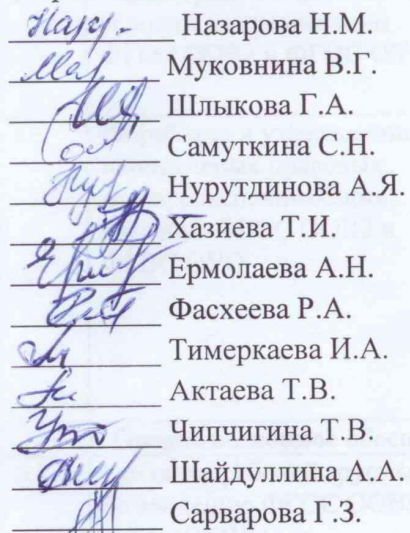 Назарова Н.М.
Муковнина В.Г.
Шлыкова Г.А.
Самуткина С.Н.
Нурутдинова А.Я.
Хазиева Т.И.
Ермолаева А.Н.
Фасхеева Р.А.
Тимеркаева И.А.
Актаева Т.В.
Чипчигина Т.В.
Шайдуллина А.А.
Сарварова Г.З.